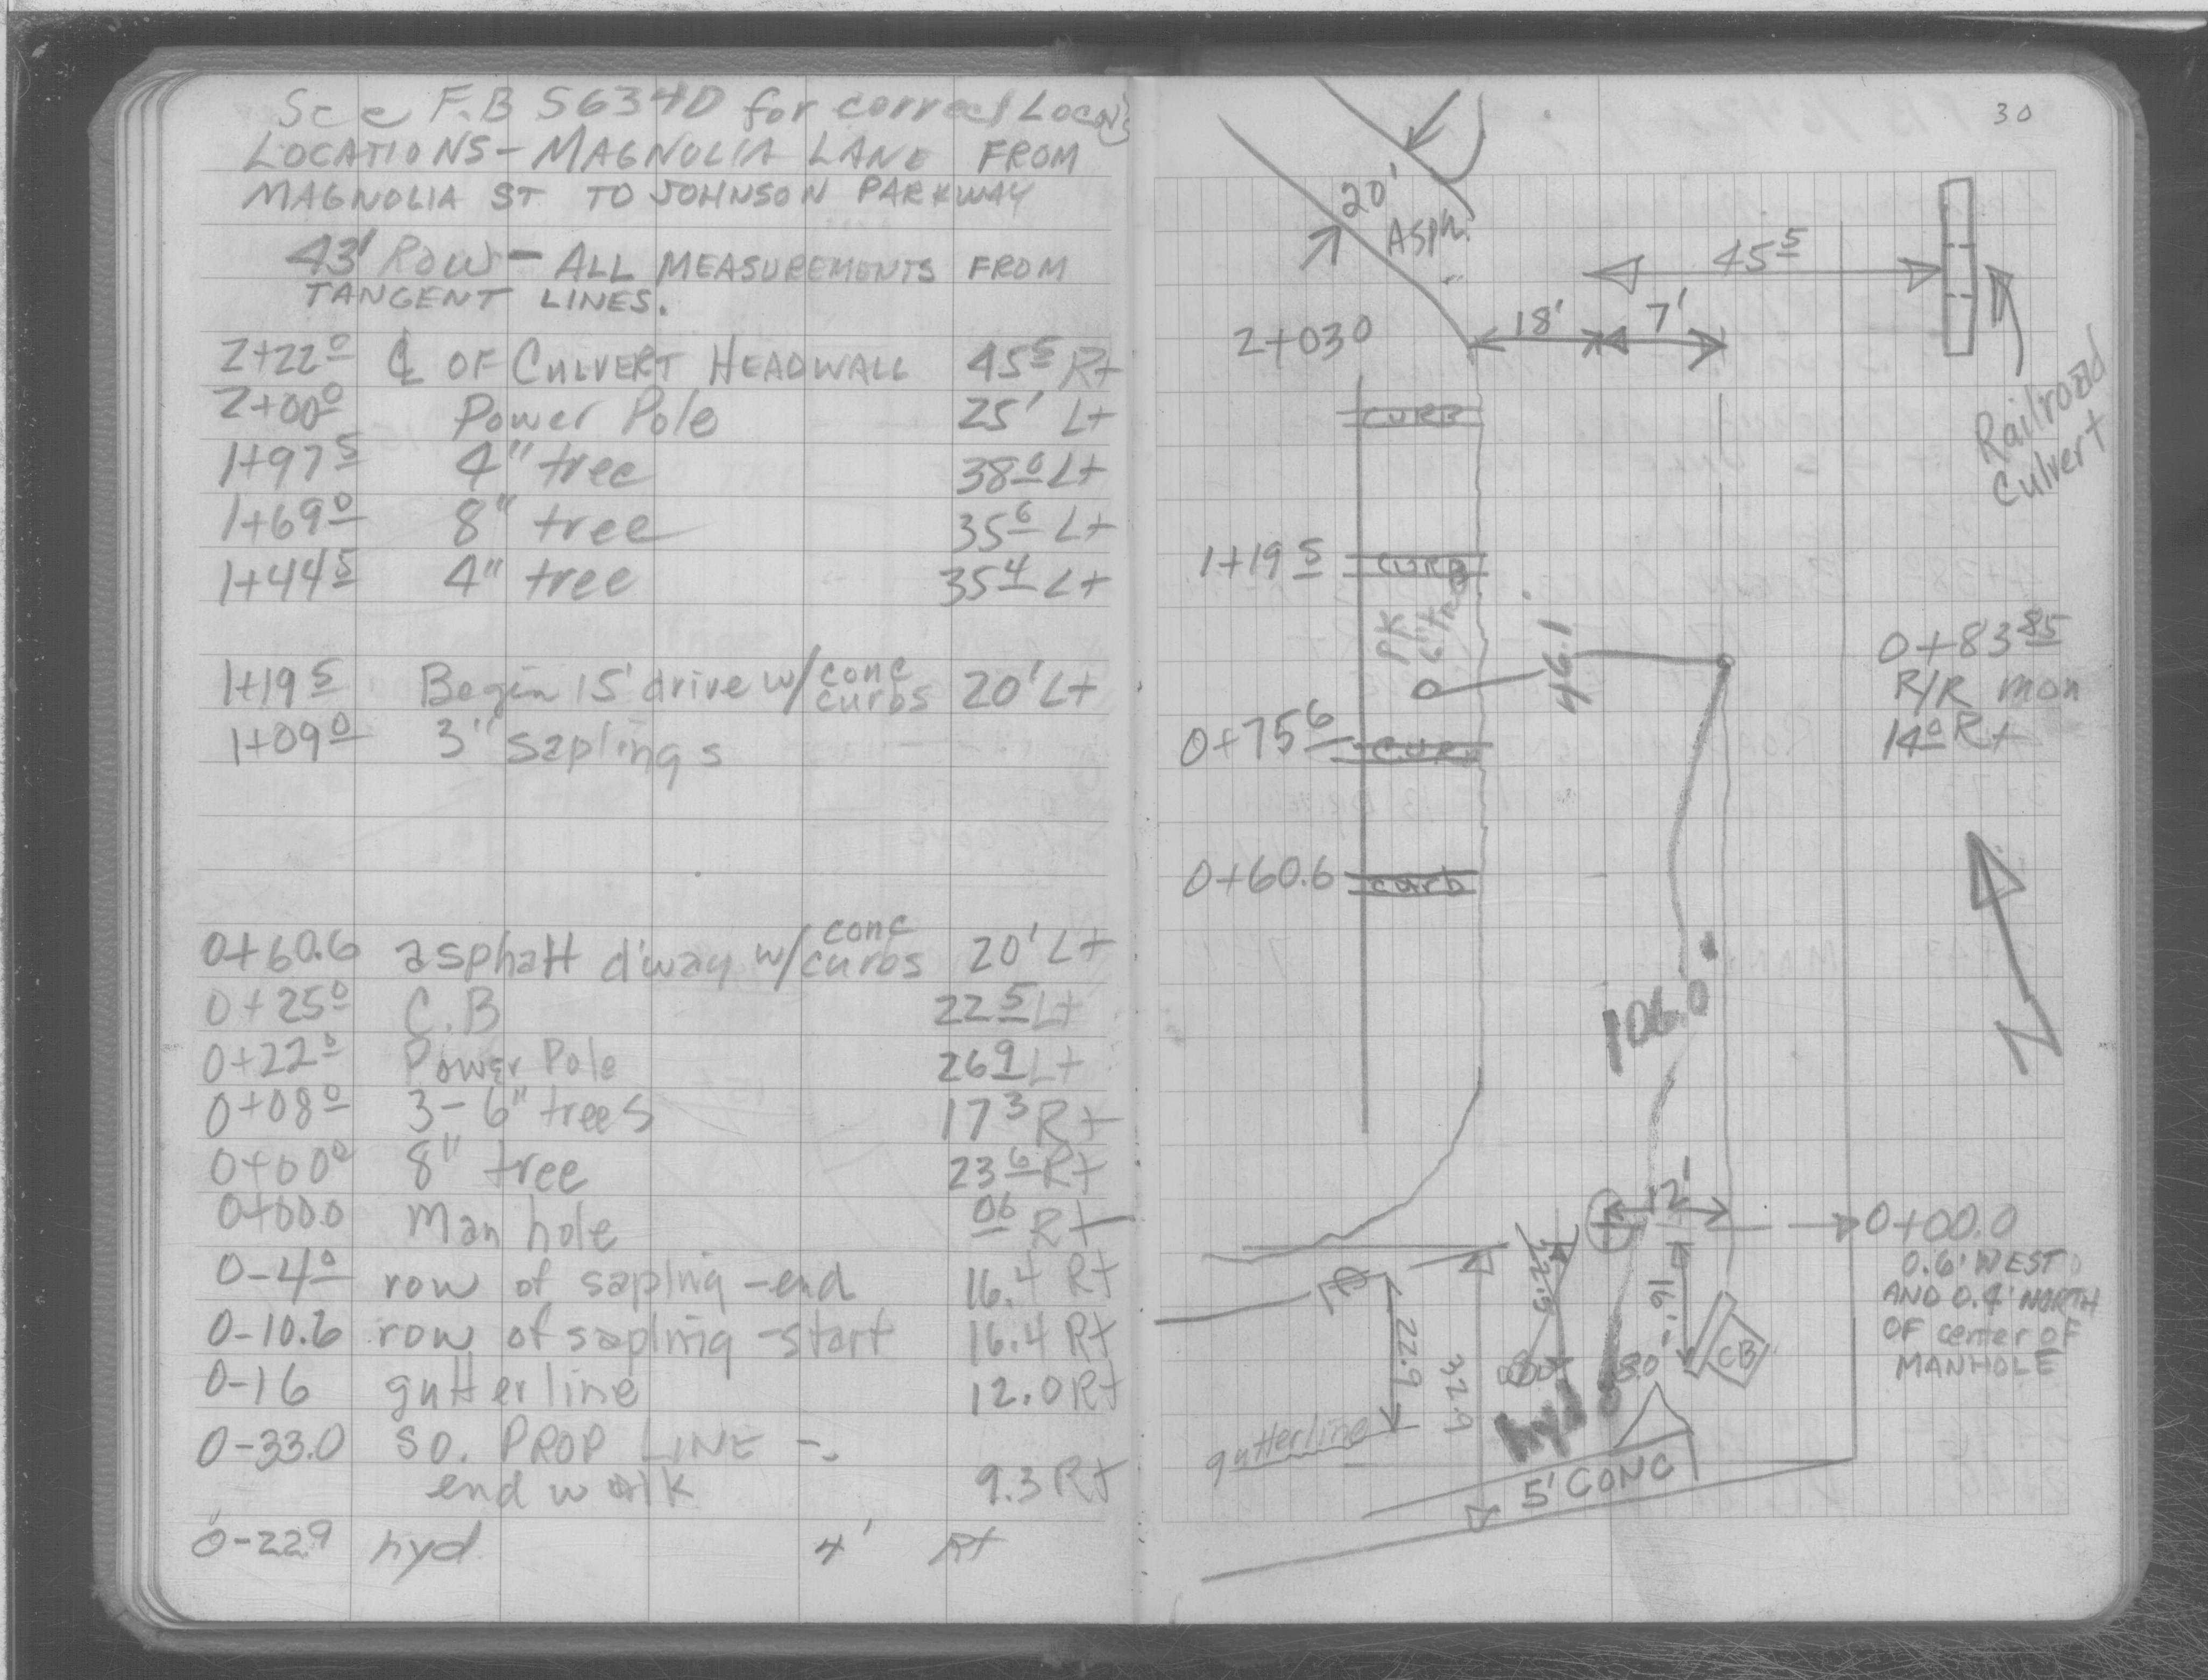 See F.B 5634D for correct Locans
LOCATIONS - MAGNOLIA LANE FROM
MAGNOLIA ST TO JOHNSON PARKWAY
43' ROW - ALL MEASUREMENTS FROM
TANGENT LINES.
2+22⁰ ℄ OF CULVERT HEADWALL 45⁵ Rt
2+00⁰ Power Pole 25' Lt
1+97⁵ 4" tree 38⁰ Lt
1+69⁰ 8" tree 35⁶ Lt
1+44⁵ 4" tree 35⁴ Lt
1+19⁵ Begin 15' drive w/ conc curbs 20' Lt
1+09⁰ 3" saplings
0+60.6 asphalt d'way w/ conc curbs 20' Lt
0+25⁰ C.B 22⁵ Lt
0+22⁰ Power Pole 26⁹ Lt
0+08⁰ 3-6" trees 17³ Rt
0+00⁰ 8" tree 23⁶ Rt
0+00.0 Man hole 06 Rt
0-4⁰ row of saplng - end 16.4 Rt
0-10.6 row of saplng - start 16.4 Rt
0-16 gutterline 12.0 Rt
0-33.0 SO. PROP LINE -
end walk 9.3 Rt
0-22.9 hyd 4' Rt
30
20'
Asph.
45⁵
18' 7'
2+030
Railroad
Culvert
CURB
1+19⁵ CURB
PK
6" tree
46.1
0+83⁸⁵
R/R mon
14⁰ Rt
0+75⁶ CURB
0+60.6 curb
106.0
N
12'
0+00.0
0.6' WEST
AND 0.4' NORTH
OF center of
MANHOLE
16'
CB
22.9
32.9
hyd
gutterline
5' CONC